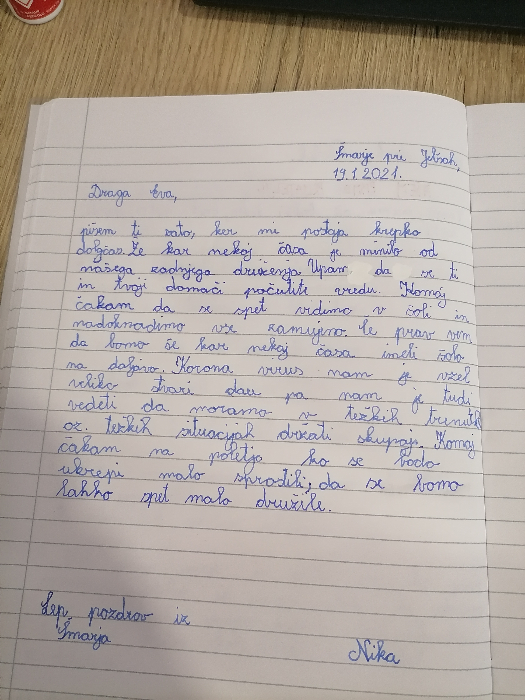 Šmarje pri Jelšah,
19.1.2021.
Draga Eva,
pišem ti zato, ker mi postaja krepko
dolgčas. Že kar nekaj časa je minilo od
našega zadnjega druženja. Upam, da se ti
in tvoji domači počutite vredu. Komaj
čakam da se spet vidimo v šoli in
nadoknadimo vse zamujeno. Če prav vem
da bomo še kar nekaj časa imeli šolo
na daljavo. Korona virus nam je vzel
veliko stvari dau pa nam je tudi
vedeti da moramo v težkih trenutk
oz. težkih situacijah držati skupaj. Komaj
čakam na poletje ko se bodo
ukrepi malo sprostili, da se bomo
lahko spet malo družile.
Lep pozdrav iz
Šmarja
Nika